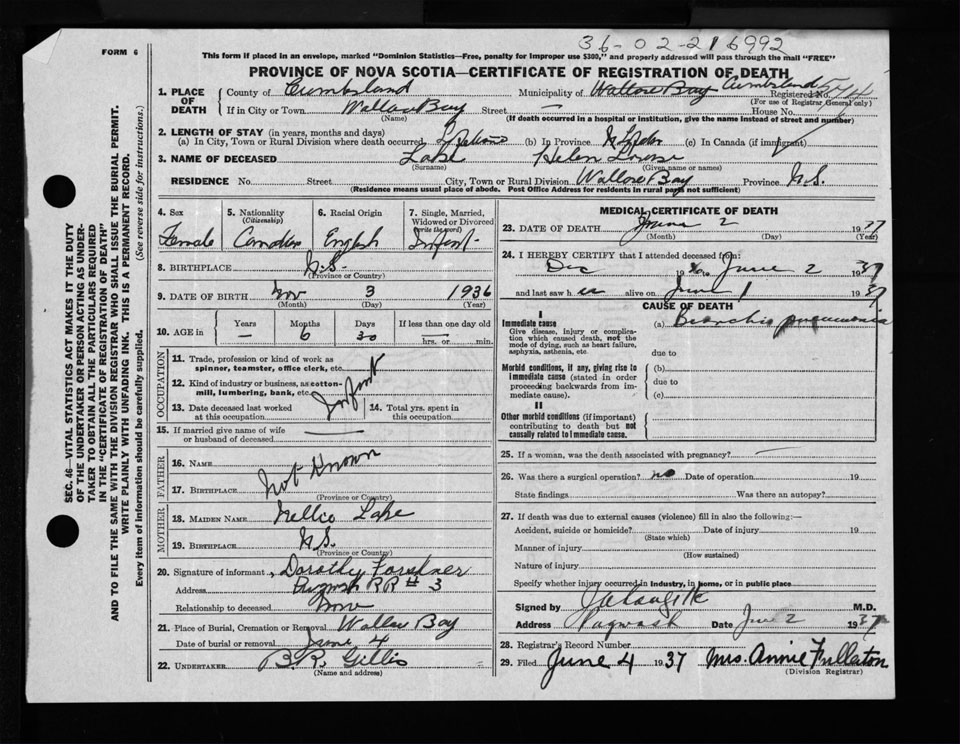 FORM 6
36-02-216992
This form if placed in an envelope, marked "Dominion Statistics—Free, penalty for improper use $300," and properly addressed will pass through the mail "FREE"
PROVINCE OF NOVA SCOTIA—CERTIFICATE OF REGISTRATION OF DEATH
1. PLACE OF DEATH
County of Cumberland Municipality of Wallace Bay Cumberland Registered No.
(For use of Registrar General only)
If in City or Town Wallace Bay Street — House No.
(Name) (If death occurred in a hospital or institution, give name instead of street and number)
2. LENGTH OF STAY (in years, months and days)
(a) In City, Town or Rural Division where death occurred (b) In Province (c) In Canada (if immigrant)
3. NAME OF DECEASED Lake Helen Louise
(Surname) (Given name or names)
RESIDENCE No. Street City, Town or Rural Division Wallace Bay Province N.S.
(Residence means usual place of abode. Post Office Address for residents in rural parts not sufficient)
4. Sex Female
5. Nationality (Citizenship) Canadian
6. Racial Origin English
7. Single, Married, Widowed or Divorced (write the word) Infant
8. BIRTHPLACE N.S.
(Province or Country)
9. DATE OF BIRTH Nov 3 1936
(Month) (Day) (Year)
10. AGE in Years Months Days If less than one day old
— 6 30 hrs. or min.
OCCUPATION
11. Trade, profession or kind of work as spinner, teamster, office clerk, etc.
12. Kind of industry or business, as cotton-mill, lumbering, bank, etc. Infant
13. Date deceased last worked at this occupation
14. Total yrs. spent in this occupation
15. If married give name of wife or husband of deceased
FATHER
16. NAME Not Known
17. BIRTHPLACE
(Province or Country)
MOTHER
18. MAIDEN NAME Nellie Lake
19. BIRTHPLACE N.S.
(Province or Country)
20. Signature of informant Dorothy Faulkner
Address Pugwash RR # 3
Relationship to deceased
21. Place of Burial, Cremation or Removal Wallace Bay
Date of burial or removal June 4
22. UNDERTAKER B.R. Gillis
(Name and address)
MEDICAL CERTIFICATE OF DEATH
23. DATE OF DEATH June 2 1937
(Month) (Day) (Year)
24. I HEREBY CERTIFY that I attended deceased from:
Dec 1936 to June 2 1937
and last saw her alive on June 1 1937
CAUSE OF DEATH
I
Immediate cause
Give disease, injury or complication which caused death, not the mode of dying, such as heart failure, asphyxia, asthenia, etc.
(a) Bronchio pneumonia
due to
Morbid conditions, if any, giving rise to immediate cause (stated in order proceeding backwards from immediate cause).
(b)
due to
(c)
II
Other morbid conditions (if important) contributing to death but not causally related to immediate cause.
25. If a woman, was the death associated with pregnancy? —
26. Was there a surgical operation? no Date of operation 19
State findings Was there an autopsy?
27. If death was due to external causes (violence) fill in also the following:—
Accident, suicide or homicide? Date of injury 19
(State which)
Manner of injury
(How sustained)
Nature of injury
Specify whether injury occurred in industry, in home, or in public place
Signed by M.D.
Address Pugwash Date June 2 1937
28. Registrar's Record Number
29. Filed June 4 1937 Mrs. Annie Fullerton
(Division Registrar)
SEC. 46—VITAL STATISTICS ACT MAKES IT THE DUTY
OF THE UNDERTAKER OR PERSON ACTING AS UNDER-
TAKER TO OBTAIN ALL THE PARTICULARS REQUIRED
IN THE "CERTIFICATE OF REGISTRATION OF DEATH"
AND TO FILE THE SAME WITH THE DIVISION REGISTRAR WHO SHALL ISSUE THE BURIAL PERMIT.
WRITE PLAINLY WITH UNFADING INK. THIS IS A PERMANENT RECORD.
Every item of information should be carefully supplied. (See reverse side for instructions.)